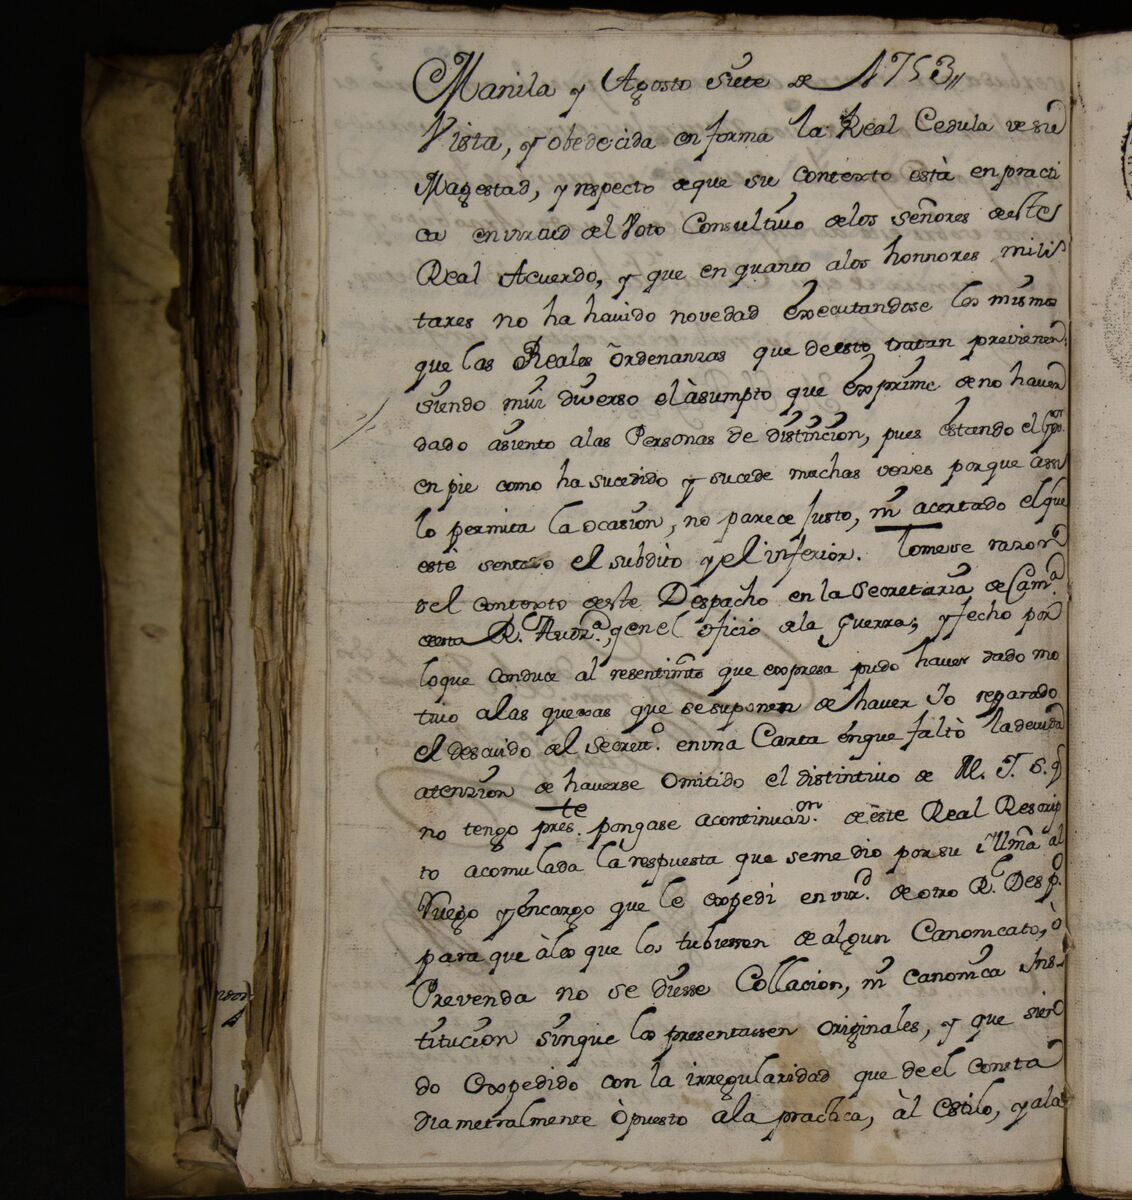 Manila y Agosto siete de 1753,,
Vista, y obedecida en forma la Real Cedula de su
Magestad, y respecto de que su contexto està en practi
ca en virtud del Voto Consultivo de los Señores de este
Real Acuerdo, y que en quanto a los honnores mili
tares no ha havido novedad executandose los mismos
que las Reales ordenanzas que de esto tratan previenen
siendo mui diverso el àsumpto que exprime de no haver
dado asiento a las Personas de distincion, pues estando el Govor.
en pie como ha sucedido y sucede muchas vezes porque assi
lo permita la ocasion, no parece Justo, ni acertado el que
estè sentado el subdito y el inferior. Tomese razon
del contexto de este Despacho en la Secretaria de Cama.
de esta Rl. Auda., y en el oficio de la Guerra; y fecho por
lo que conduce al resentimto que expresa pudo haver dado mo
tivo a las quexas que se suponen de haver Yo reparado
el descuido del Secreto. en una Carta en que faltò la devida
atenzion de haverse omitido el distintivo de M. I. S. q
no tengo preste. pongase a continuazn. de èste Real Rescrip
to acomulada la respuesta que se me dio por su Illma al
Ruego y encargo que le expedi en vird. de otro Rl. Despo.
para que à los que los tubiessen de algun Canonicato, ò
Prevenda no se diesse Collacion, ni canonica Ins-
titucion sin que los presentassen originales, y que sien
do Expedido con la irregularidad que de el consta
diametralmente òpuesto a la practica, àl estilo, y a la